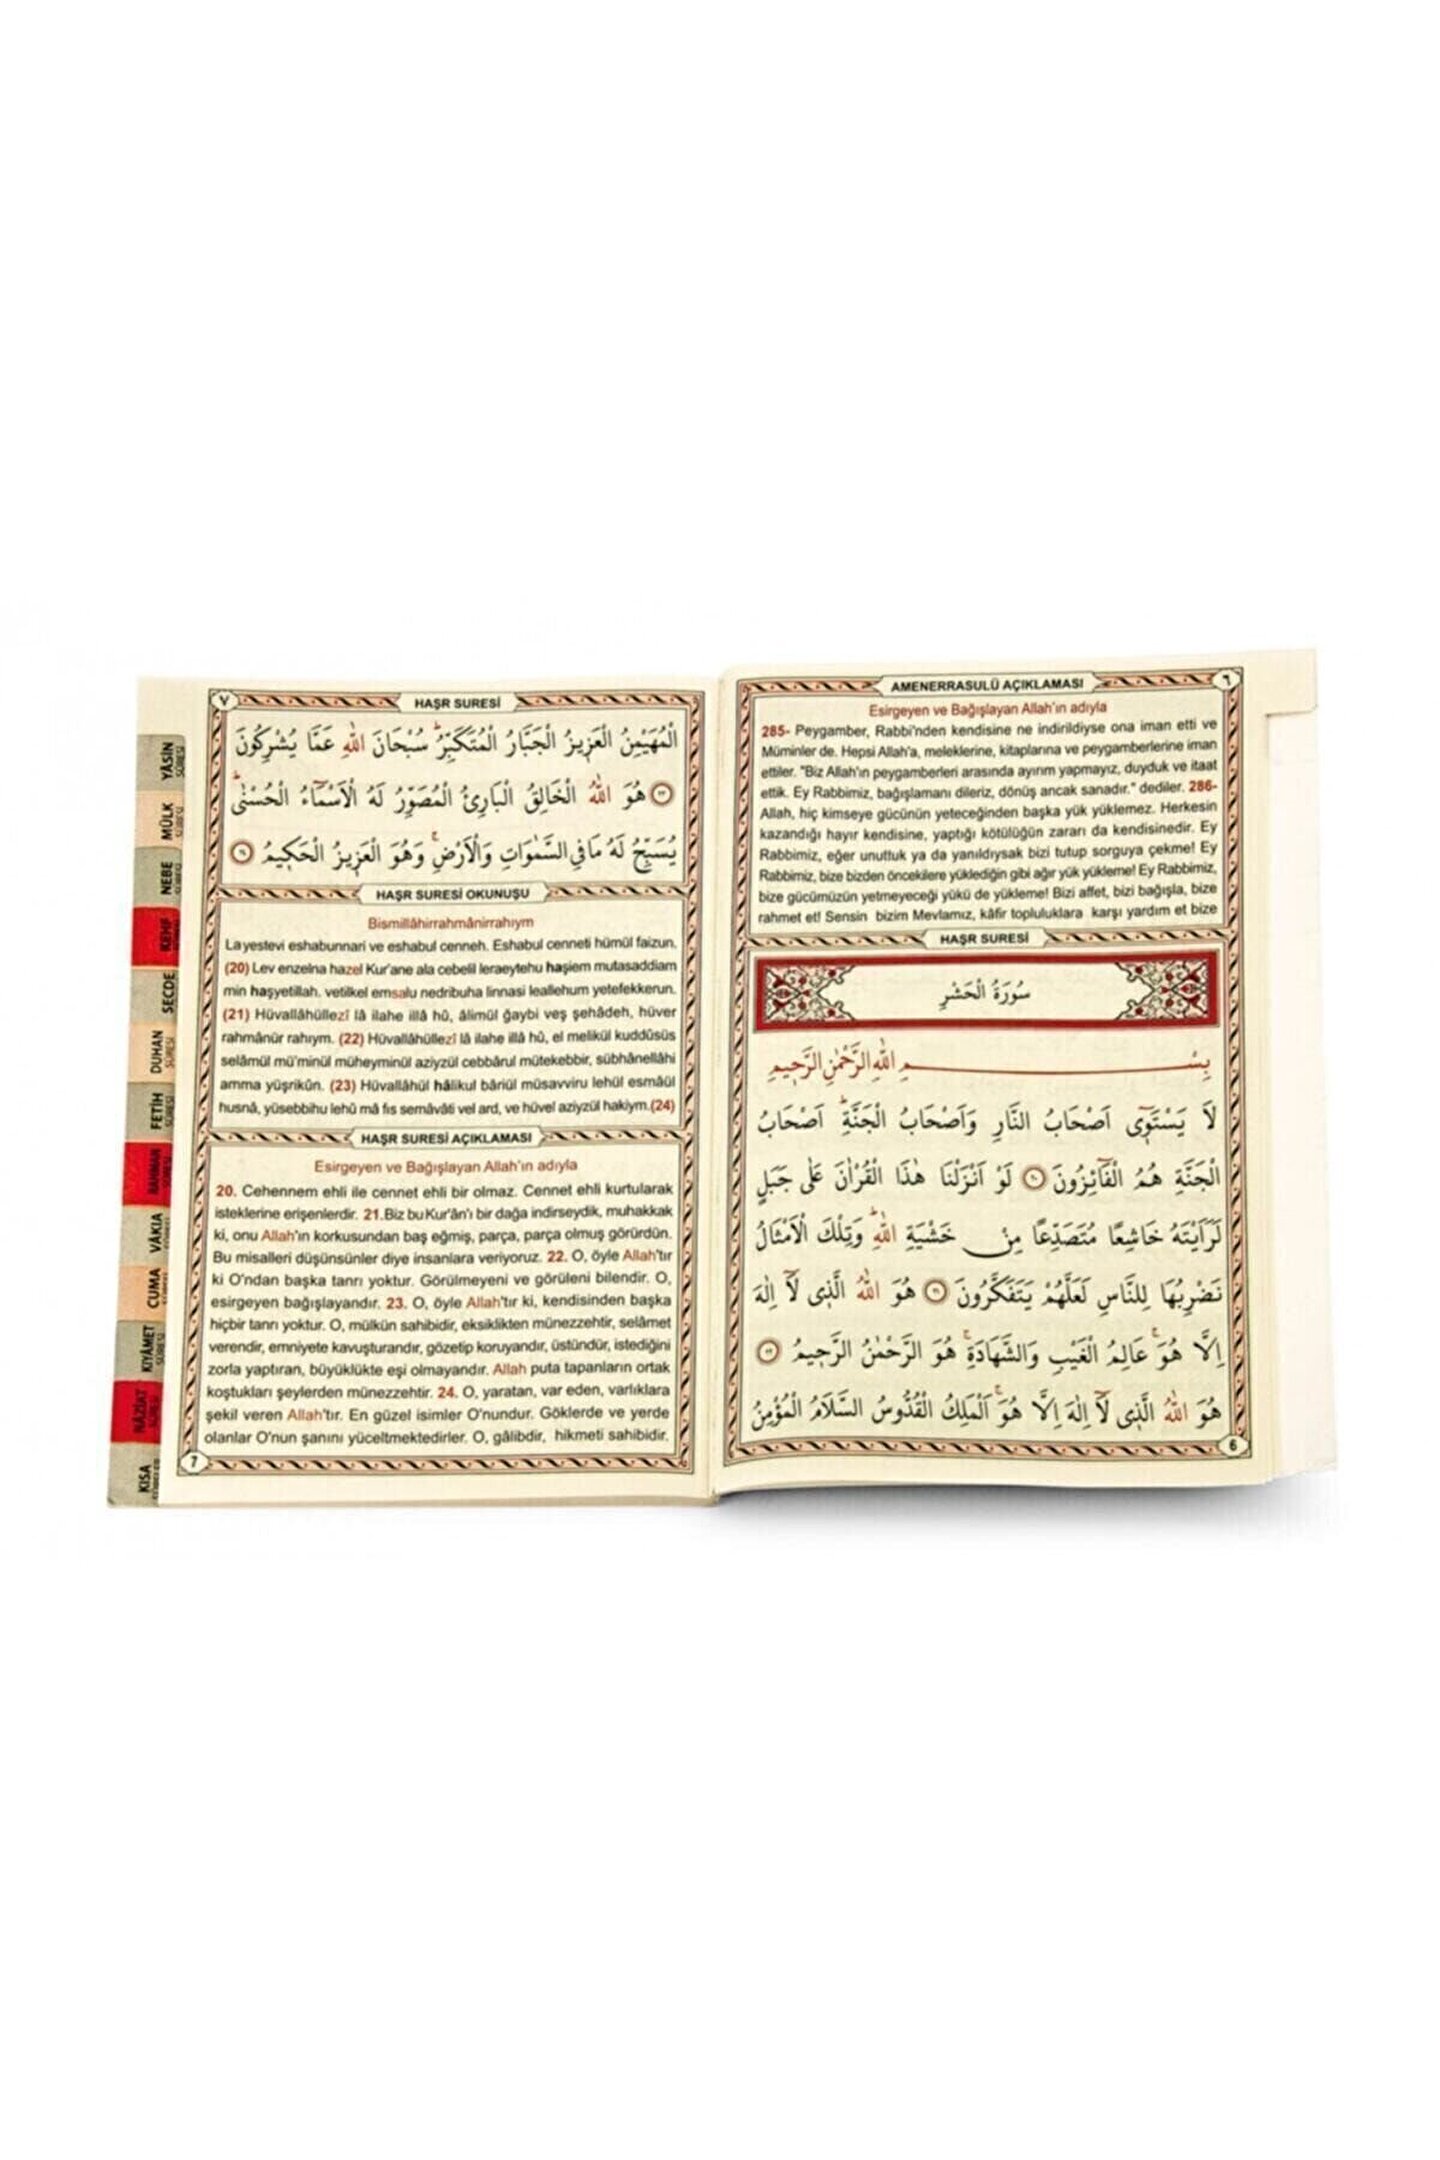 AMENERRASULÜ AÇIKLAMASI
٦
Esirgeyen ve Bağışlayan Allah'ın adıyla
285- Peygamber, Rabbi'nden kendisine ne indirildiyse ona iman etti ve
Müminler de. Hepsi Allah'a, meleklerine, kitaplarına ve peygamberlerine iman
ettiler. "Biz Allah'ın peygamberleri arasında ayırım yapmayız, duyduk ve itaat
ettik. Ey Rabbimiz, bağışlamanı dileriz, dönüş ancak sanadır." dediler. 286-
Allah, hiç kimseye gücünün yeteceğinden başka yük yüklemez. Herkesin
kazandığı hayır kendisine, yaptığı kötülüğün zararı da kendisinedir. Ey
Rabbimiz, eğer unuttuk ya da yanıldıysak bizi tutup sorguya çekme! Ey
Rabbimiz, bize bizden öncekilere yüklediğin gibi ağır yük yükleme! Ey Rabbimiz,
bize gücümüzün yetmeyeceği yükü de yükleme! Bizi affet, bizi bağışla, bize
rahmet et! Sensin bizim Mevlamız, kâfir topluluklara karşı yardım et bize
HAŞR SURESİ
سُورَةُ الْحَشْرِ
بِسْمِ اللّٰهِ الرَّحْمٰنِ الرَّح۪يمِ
لَا يَسْتَو۪ٓى اَصْحَابُ النَّارِ وَاَصْحَابُ الْجَنَّةِۜ اَصْحَابُ
الْجَنَّةِ هُمُ الْفَٓائِزُونَ ﴿٢٠﴾ لَوْ اَنْزَلْنَا هٰذَا الْقُرْاٰنَ عَلٰى جَبَلٍ
لَرَاَيْتَهُ خَاشِعًا مُتَصَدِّعًا مِنْ خَشْيَةِ اللّٰهِۜ وَتِلْكَ الْاَمْثَالُ
نَضْرِبُهَا لِلنَّاسِ لَعَلَّهُمْ يَتَفَكَّرُونَ ﴿٢١﴾ هُوَ اللّٰهُ الَّذ۪ى لَٓا اِلٰهَ
اِلَّا هُوَۚ عَالِمُ الْغَيْبِ وَالشَّهَادَةِۚ هُوَ الرَّحْمٰنُ الرَّح۪يمُ ﴿٢٢﴾
هُوَ اللّٰهُ الَّذ۪ى لَٓا اِلٰهَ اِلَّا هُوَۚ اَلْمَلِكُ الْقُدُّوسُ السَّلَامُ الْمُؤْمِنُ
6
٧
HAŞR SURESİ
الْمُهَيْمِنُ الْعَز۪يزُ الْجَبَّارُ الْمُتَكَبِّرُۜ سُبْحَانَ اللّٰهِ عَمَّا يُشْرِكُونَ
﴿٢٣﴾ هُوَ اللّٰهُ الْخَالِقُ الْبَارِئُ الْمُصَوِّرُ لَهُ الْاَسْمَٓاءُ الْحُسْنٰىۜ
يُسَبِّحُ لَهُ مَا فِي السَّمٰوَاتِ وَالْاَرْضِۚ وَهُوَ الْعَز۪يزُ الْحَك۪يمُ
HAŞR SURESİ OKUNUŞU
Bismillâhirrahmânirrahıym
La yestevi eshabunnari ve eshabul cenneh. Eshabul cenneti hümül faizun.
(20) Lev enzelna hazel Kur'ane ala cebelil leraeytehu haşiem mutasaddiam
min haşyetillah. vetilkel emsalu nedribuha linnasi leallehum yetefekkerun.
(21) Hüvallâhüllezî lâ ilahe illâ hû, âlimül ğaybi veş şehâdeh, hüver
rahmânür rahıym. (22) Hüvallâhüllezî lâ ilahe illâ hû, el melikül kuddûsüs
selâmül mü'minül müheyminül aziyzül cebbârul mütekebbir, sübhânellâhi
amma yüşrikûn. (23) Hüvallâhül hâlikul bâriül müsavviru lehül esmâül
husnâ, yüsebbihu lehû mâ fis semâvâti vel ard, ve hüvel aziyzül hakiym.(24)
HAŞR SURESİ AÇIKLAMASI
Esirgeyen ve Bağışlayan Allah'ın adıyla
20. Cehennem ehli ile cennet ehli bir olmaz. Cennet ehli kurtularak
isteklerine erişenlerdir. 21.Biz bu Kur'ân'ı bir dağa indirseydik, muhakkak
ki, onu Allah'ın korkusundan baş eğmiş, parça, parça olmuş görürdün.
Bu misalleri düşünsünler diye insanlara veriyoruz. 22. O, öyle Allah'tır
ki O'ndan başka tanrı yoktur. Görülmeyeni ve görüleni bilendir. O,
esirgeyen bağışlayandır. 23. O, öyle Allah'tır ki, kendisinden başka
hiçbir tanrı yoktur. O, mülkün sahibidir, eksiklikten münezzehtir, selâmet
verendir, emniyete kavuşturandır, gözetip koruyandır, üstündür, istediğini
zorla yaptıran, büyüklükte eşi olmayandır. Allah puta tapanların ortak
koştukları şeylerden münezzehtir. 24. O, yaratan, var eden, varlıklara
şekil veren Allah'tır. En güzel isimler O'nundur. Göklerde ve yerde
olanlar O'nun şanını yüceltmektedirler. O, gâlibdir, hikmeti sahibidir.
7
YÂSİN
SÛRESİ
MÜLK
SÛRESİ
NEBE
KEHF
SECDE
DUHAN
SÛRESİ
FETİH
SÛRESİ
RAHMAN
SÛRESİ
VÂKIA
CUMA
KIYÂMET
SÛRESİ
NÂZİÂT
KISA